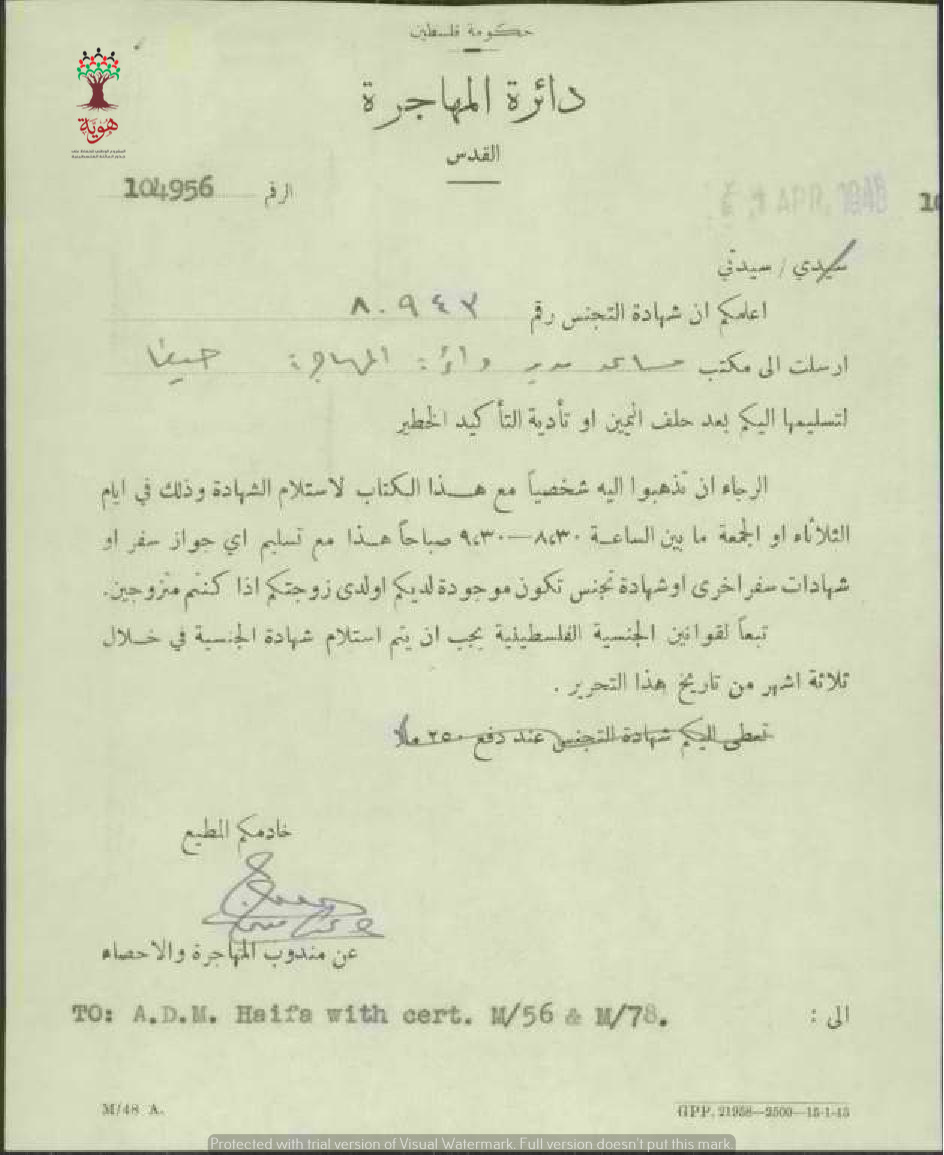 حكومة فلسطين
دائرة المهاجرة
القدس
هوية
104956 الرقم
APR. 1948
10
سيدي / سيدتي
اعلمكم ان شهادة التجنس رقم ٨٠٩٤٣
ارسلت الى مكتب مساعد مدير دائرة المهاجرة حيفا
لتسليمها اليكم بعد حلف اليمين او تأدية التأكيد الخطير
الرجاء ان تذهبوا اليه شخصياً مع هذا الكتاب لاستلام الشهادة وذلك في ايام
الثلاثاء او الجمعة ما بين الساعة ٨،٣٠—٩،٣٠ صباحاً هذا مع تسليم اي جواز سفر او
شهادات سفر اخرى او شهادة تجنس تكون موجودة لديكم او لدى زوجتكم اذا كنتم متزوجين.
تبعاً لقوانين الجنسية الفلسطينية يجب ان يتم استلام شهادة الجنسية في خلال
ثلاثة اشهر من تاريخ هذا التحرير .
تعطى اليكم شهادة التجنس عند دفع ٢٥٠ ملاً
خادمكم المطيع
عن مندوب المهاجرة والاحصاء
TO: A.D.M. Haifa with cert. M/56 & M/78.
الى :
M/48 A.
GPP. 21958—2500—15-1-45
Protected with trial version of Visual Watermark. Full version doesn't put this mark.